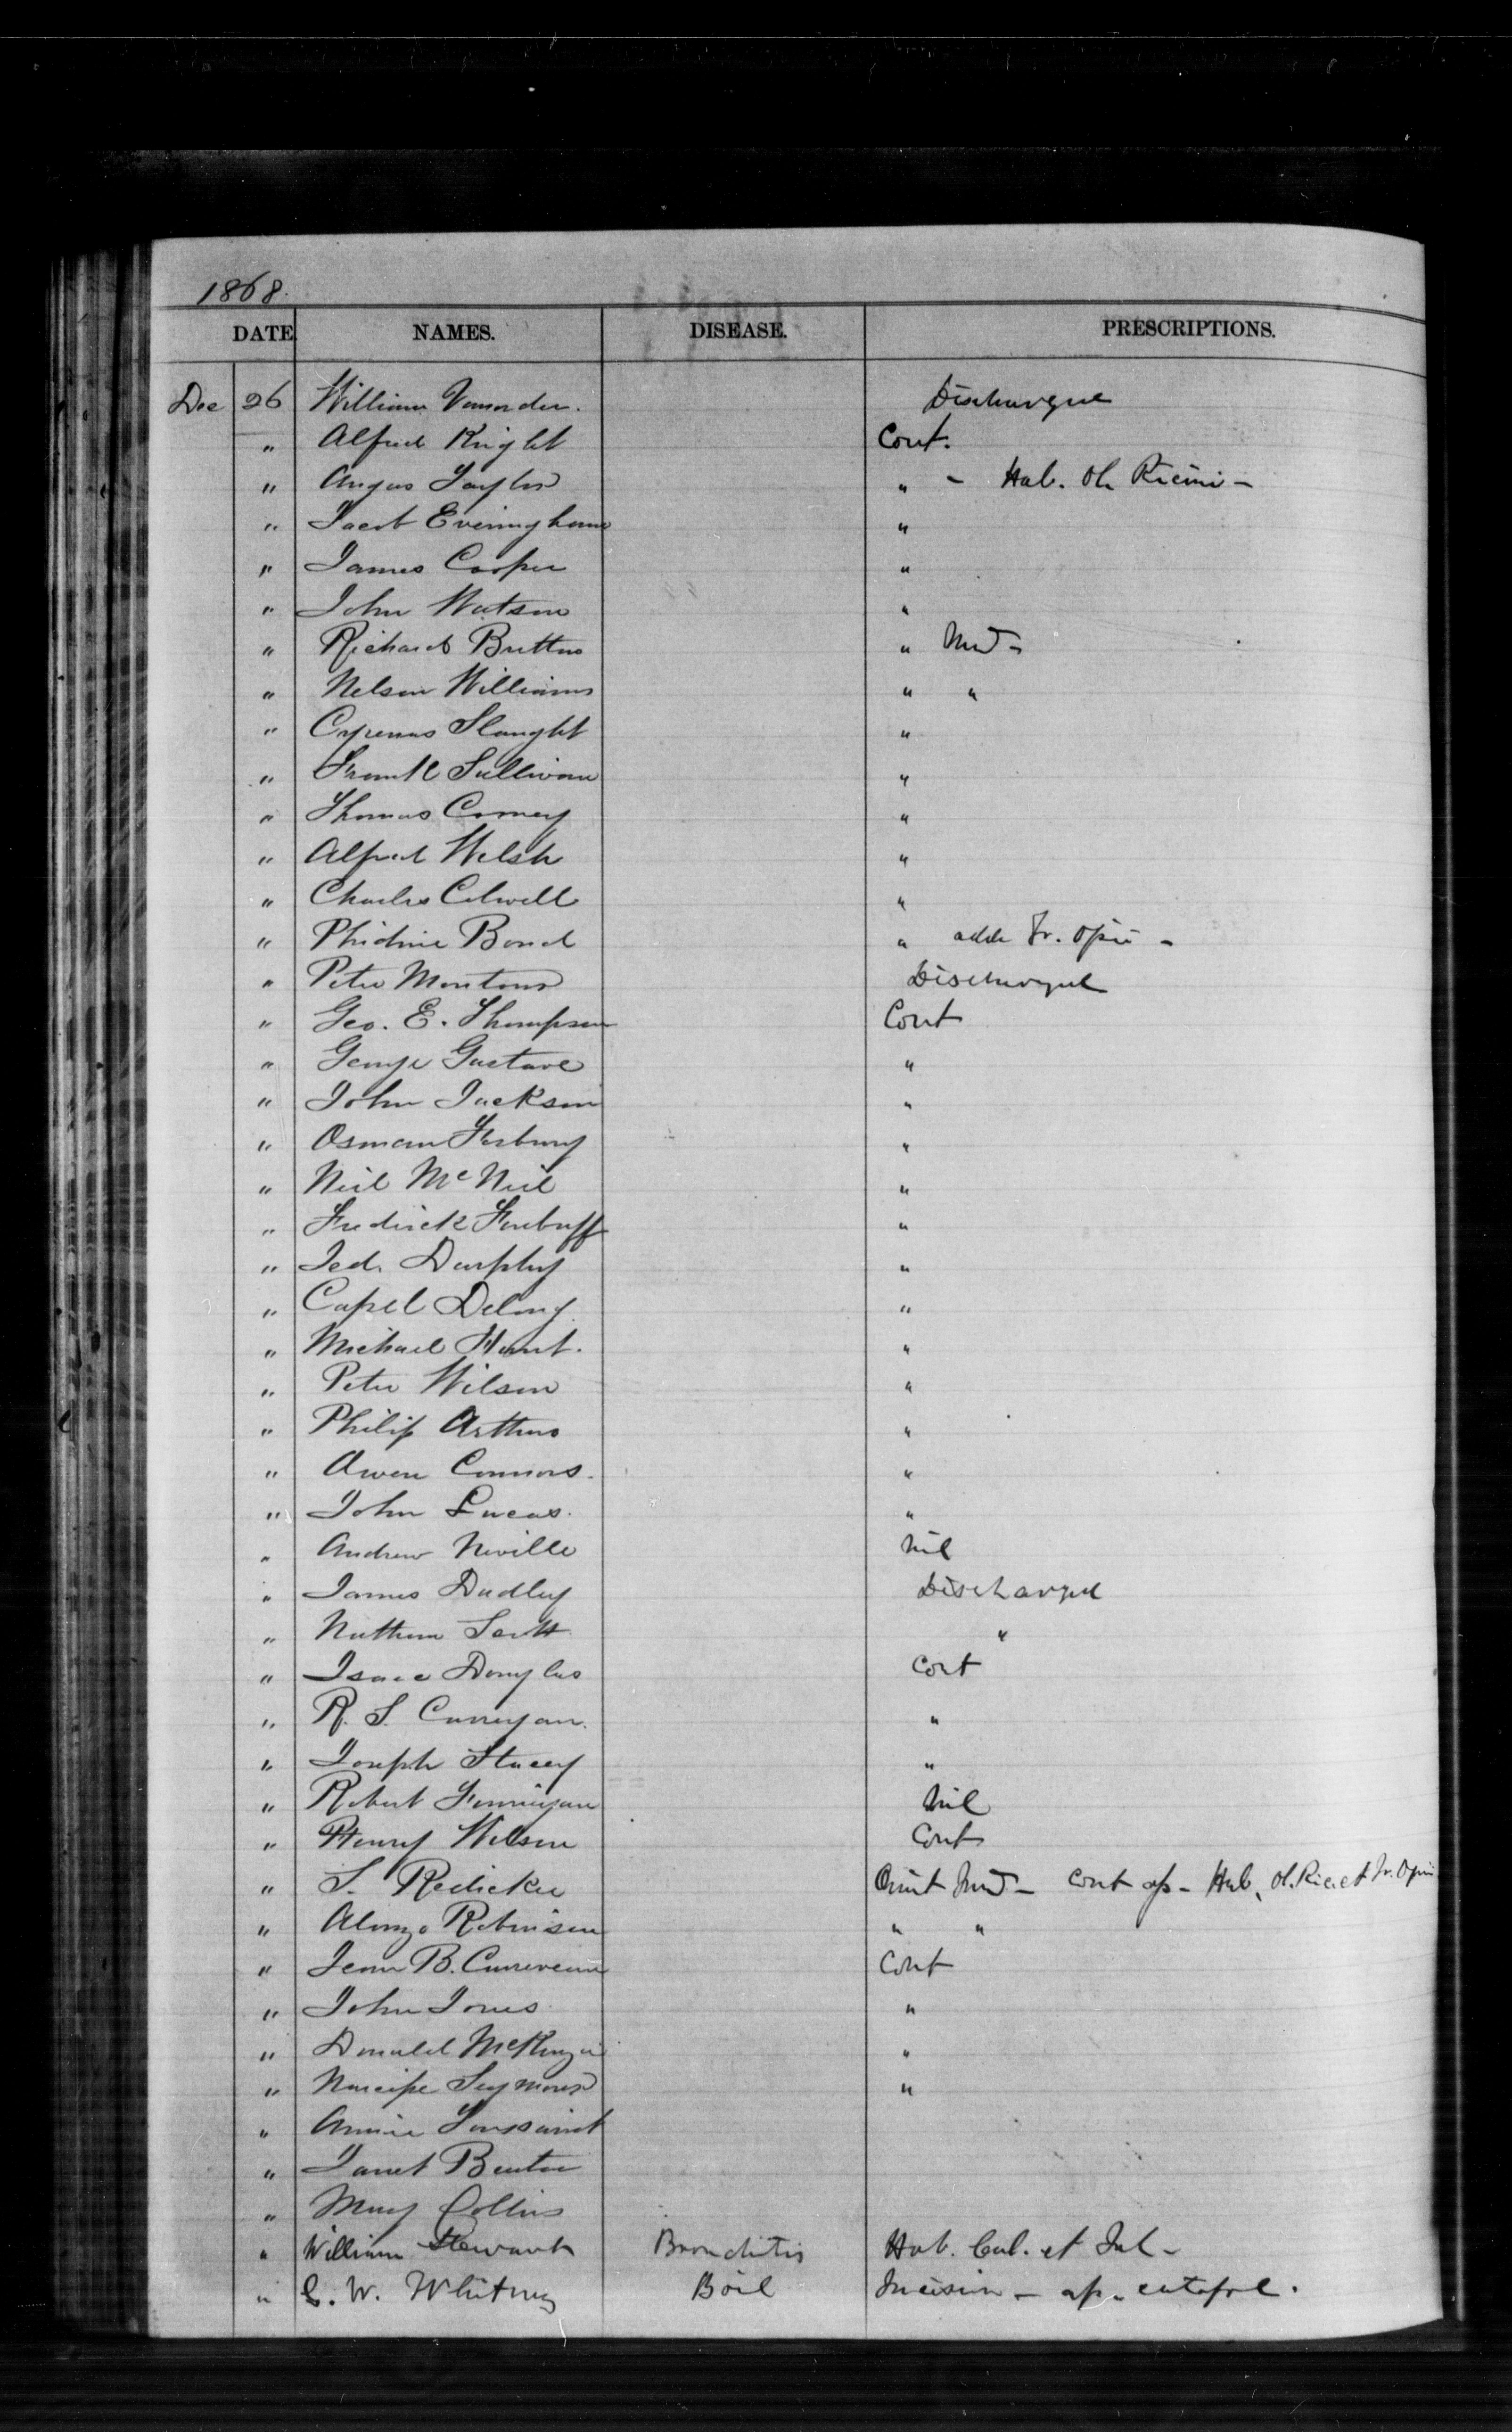 1868.
DATE NAMES. DISEASE. PRESCRIPTIONS.
Dec 26 William Vanorder. Discharged
" Alfred Knight Cont.
" Angus Taylor " - Hab. Ol. Ricini -
" Jacob Everingham "
" James Cooper "
" John Watson "
" Richard Britton "
" Nelson Williams " "
" Cyrenus Slaught "
" Frank Sullivan "
" Thomas Corney "
" Alfred Welsh "
" Charles Colwell "
" Phidime Bond " adde Tr. Opii -
" Peter Montour Discharged
" Geo. E. Thompson Cont
" George Gustave "
" John Jackson "
" Osman Forbury "
" Neil McNeil "
" Fredrick Forbuff "
" Jed. Durphy "
" Capel Delong "
" Michael Hunt. "
" Peter Wilson "
" Philip Arthurs "
" Owen Connors. "
" John Lucas. "
" Andrew Neville Nil
" James Dudley Discharged
" Nathan Scott "
" Isaac Douglas Cont
" R. S. Curregan. "
" Joseph Stacey "
" Robert Finnigan Nil
" Henry Wilson Cont
" S. Redicker Omit - Cont ap - Hab. Ol. Ric. et Tr. Opii
" Alonzo Robinson " "
" Jean B. Cont
" John Jones "
" Donald McKenzie "
" Narcisse Seymour "
" Annie Toussaint
" Janet Benton
" Mary Collins
" William Stewart Bronchitis Hab. Cal. et Jal -
" C. W. Whitney Boil Incision - ap. catapl.